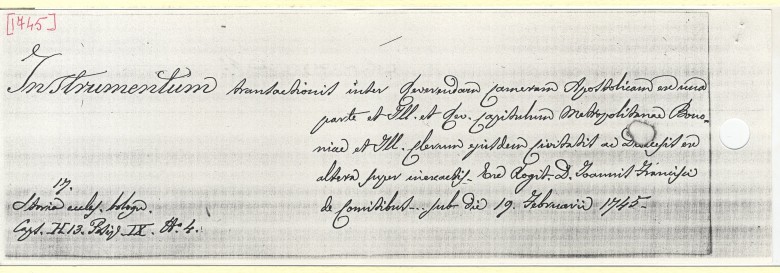 [1745]
Instrumentum transactionis inter Reverendam Cameram Apostolicam ex una
parte et Ill. et Rev. Capitulum Metropolitanae Bono-
niae et Ill. Clerum ejusdem Civitatis ac Diocesis ex
altera super inexactis. Ex Rogit. D. Joannis Francisci
de Comitibus... sub die 19. Februarii 1745-
17.
Storia eccles. bologn.
Caps. H 13. IX. No. 4.